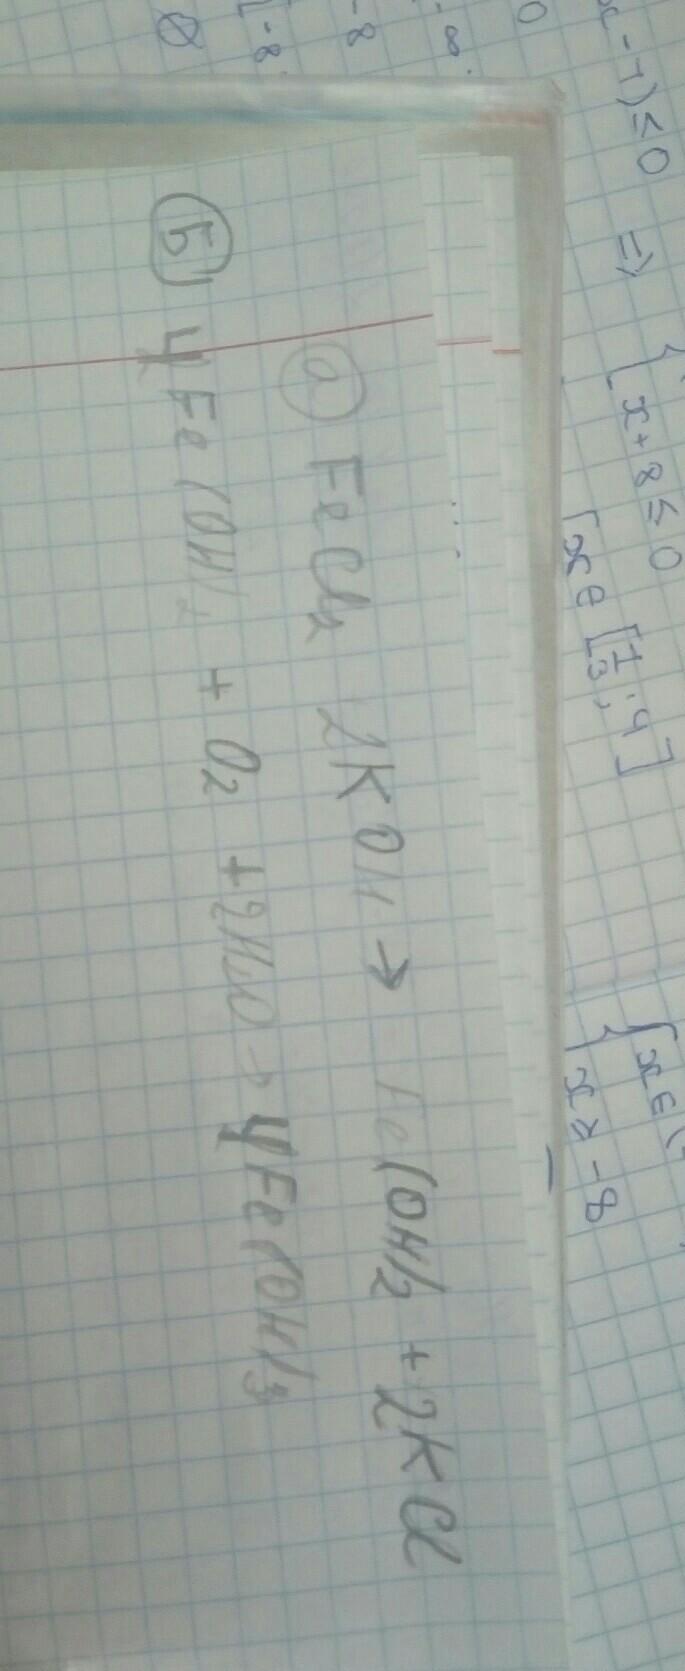 x - 1) ≤ 0 ⇒ { x + 8 ≤ 0
[ x ∈ [1/3; 4]
{ x ∈ (
x ≥ -8
- ∞
0
-8
[-8
∅
а) FeCl₂ 2KOH → Fe(OH)₂ + 2KCl
Б) 4Fe(OH)₂ + O₂ + 2H₂O → 4Fe(OH)₃